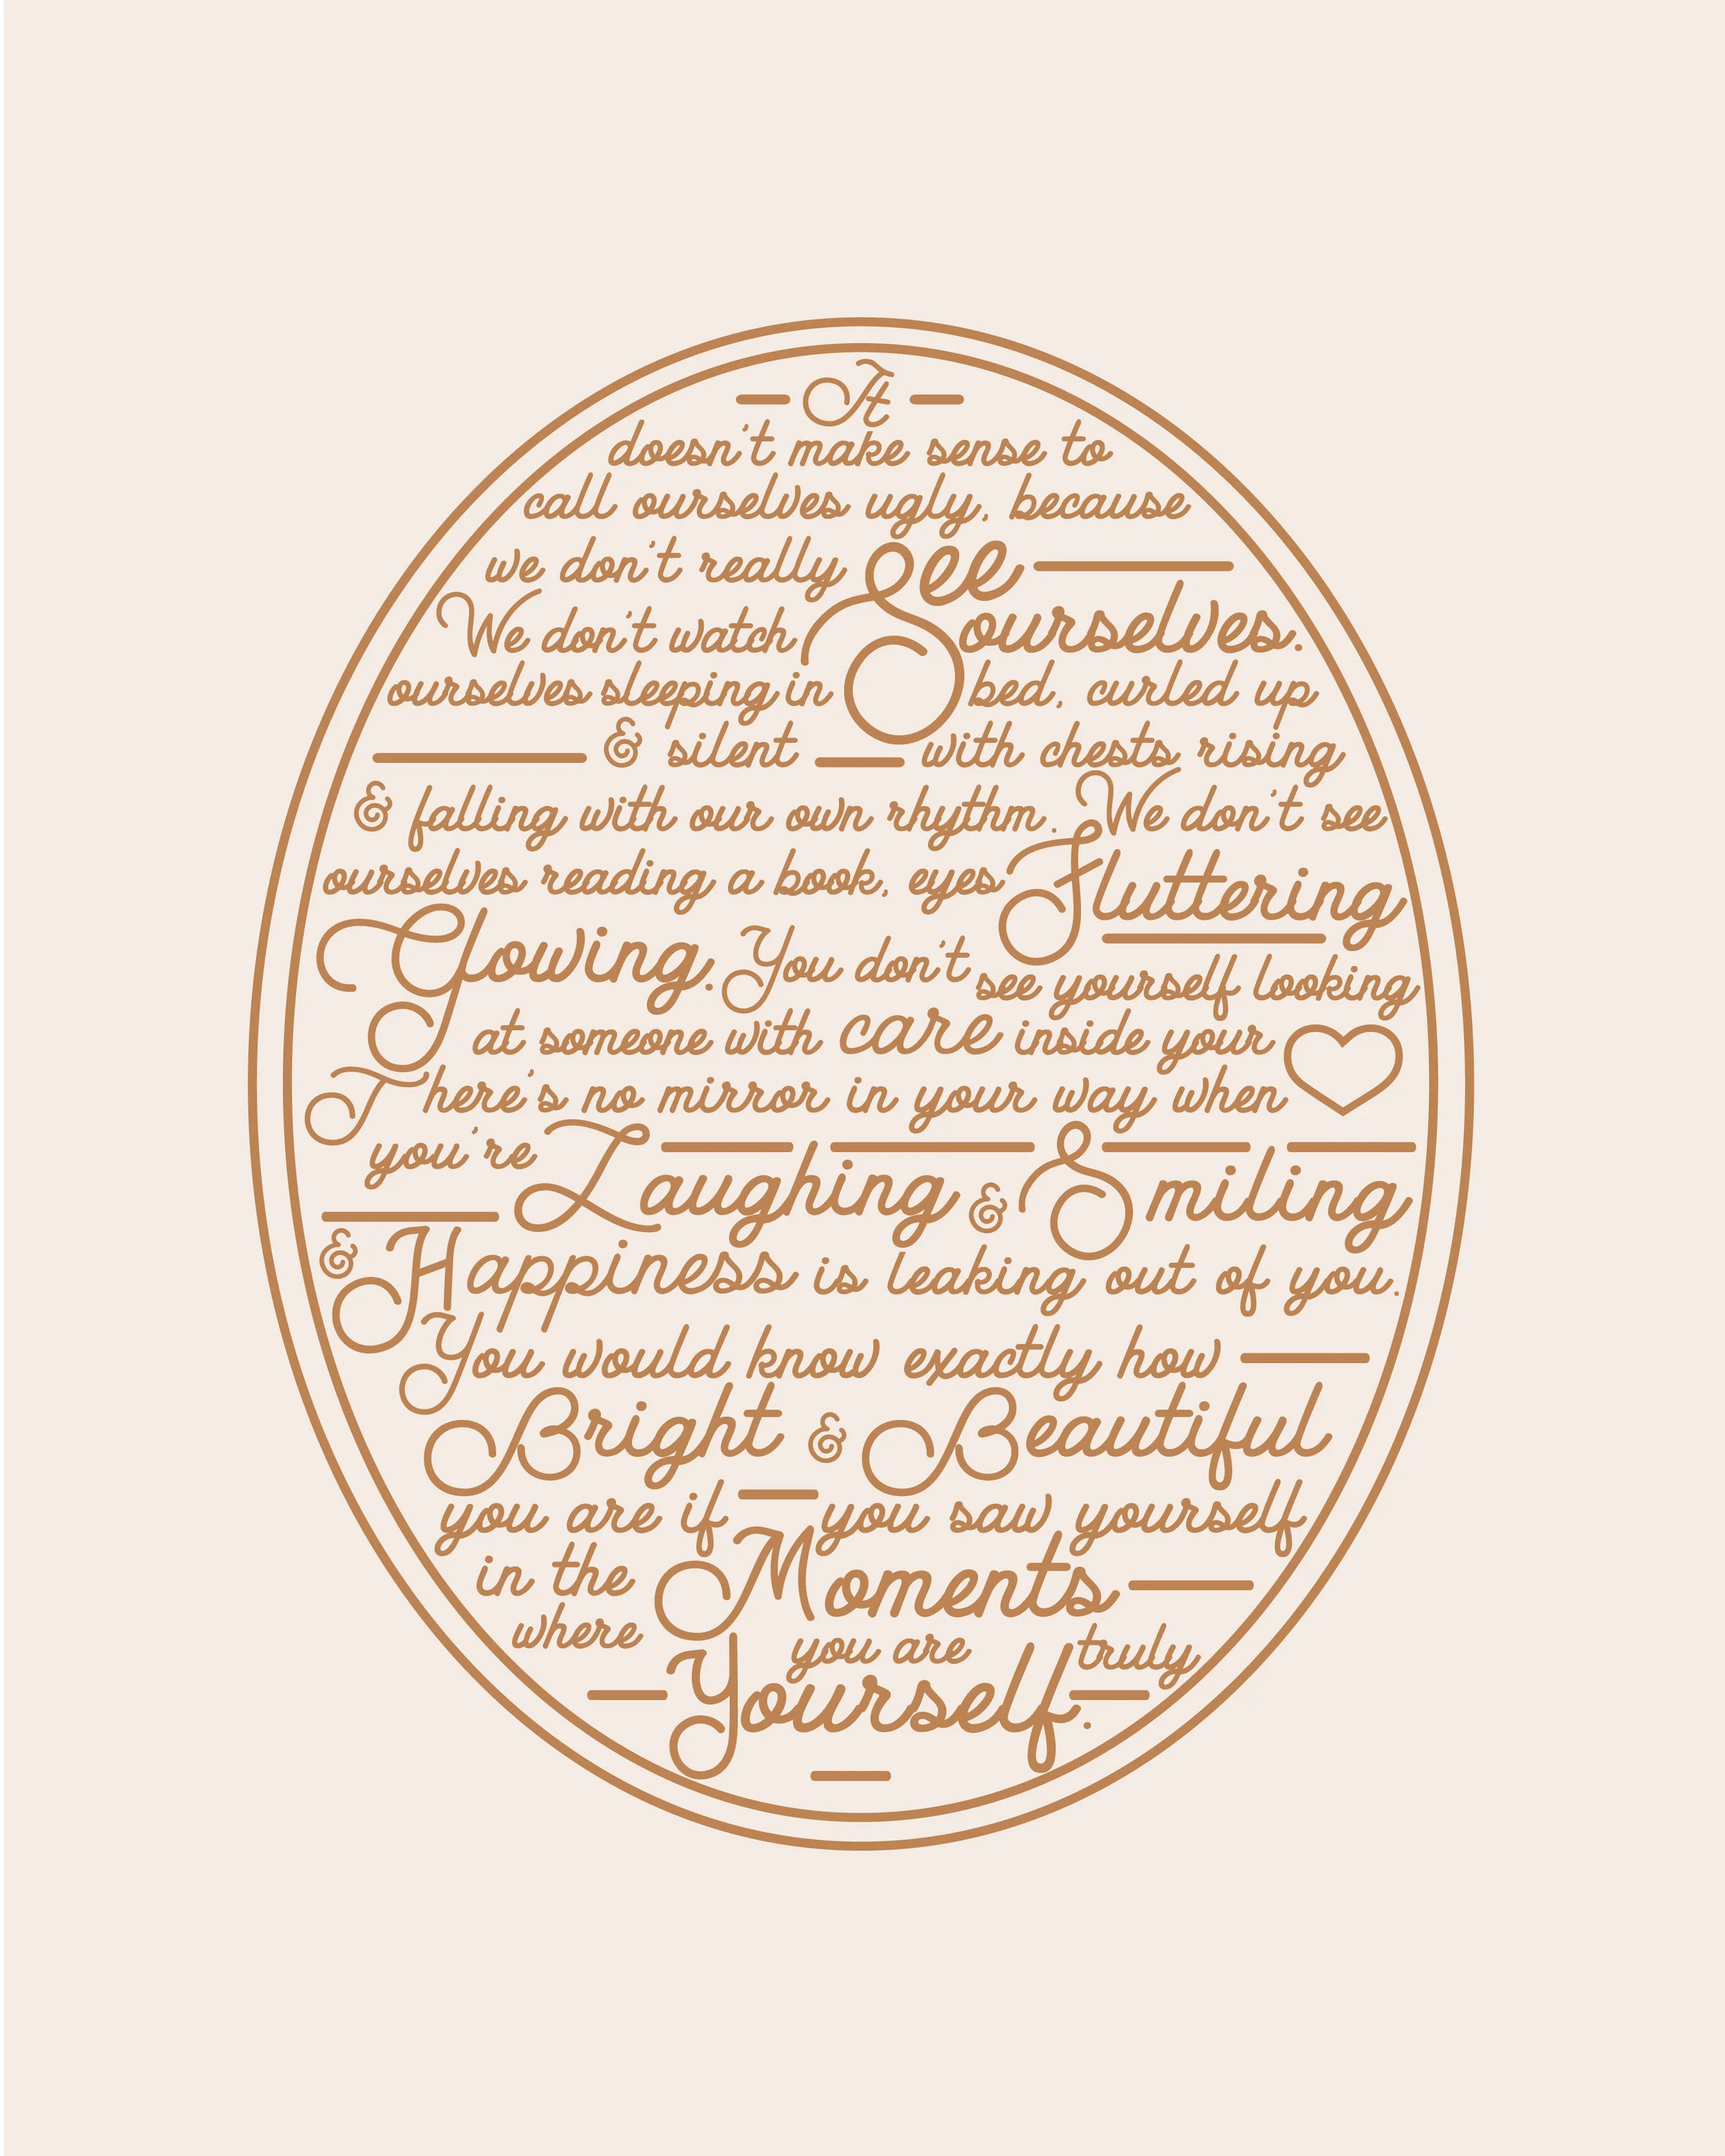 It
doesn't make sense to
call ourselves ugly, because
we don't really See
ourselves.
We don't watch
ourselves sleeping in bed, curled up
& silent with chests rising
& falling with our own rhythm. We don't see
ourselves reading a book, eyes Fluttering
Glowing. You don't see yourself looking
at someone with care inside your
There's no mirror in your way when
you're Laughing & Smiling
& Happiness is leaking out of you.
You would know exactly how
Bright & Beautiful
you are if you saw yourself
in the Moments
where you are truly
Yourself.